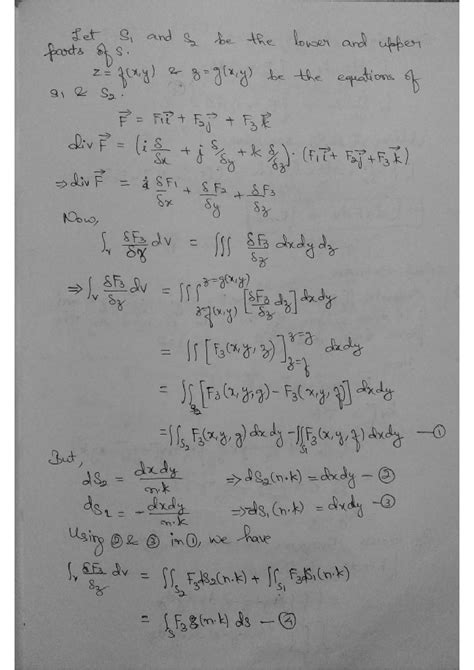 Let S₁ and S₂ be the lower and upper
parts of S.
z = f(x,y) & z = g(x,y) be the equations of
s₁ & S₂.
F⃗ = F₁i⃗ + F₂j⃗ + F₃k⃗
div F⃗ = (i δ/δx + j δ/δy + k δ/δz) . (F₁i⃗ + F₂j⃗ + F₃k⃗)
⇒ div F⃗ = δF₁/δx + δF₂/δy + δF₃/δz
Now,
∫v δF₃/δz dv = ∭ δF₃/δz dx dy dz
⇒ ∫v δF₃/δz dv = ∬∫_{z=f(x,y)}^{z=g(x,y)} [δF₃/δz dz] dx dy
= ∬ [F₃(x, y, z)]_{z=f}^{z=g} dx dy
= ∬ [F₃(x, y, g) - F₃(x, y, f)] dx dy
= ∬_{S₂} F₃(x, y, g) dx dy - ∬_{S₁} F₃(x, y, f) dx dy — ①
But,
dS₂ = dx dy / n.k ⇒ dS₂ (n.k) = dx dy — ②
dS₁ = - dx dy / n.k ⇒ dS₁ (n.k) = dx dy — ③
Using ② & ③ in ①, we have
∫v δF₃/δz dv = ∬_{S₂} F₃ dS₂ (n.k) + ∬_{S₁} F₃ dS₁ (n.k)
= ∫_S F₃ (n.k) ds — ④